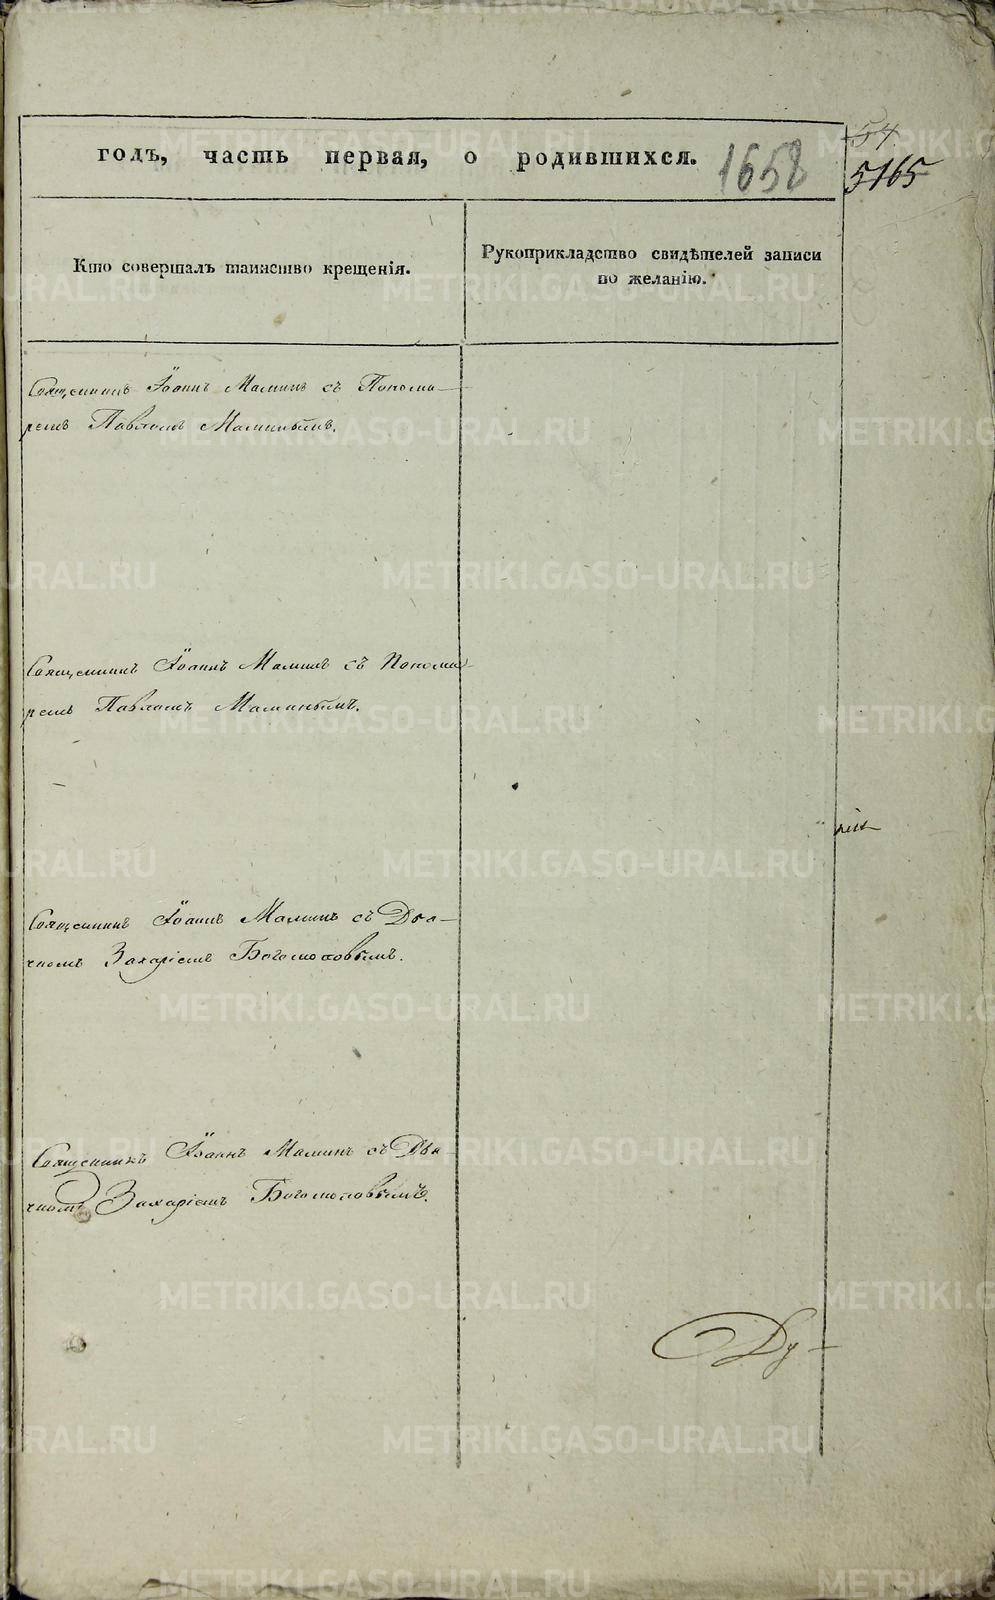 годъ, часть первая, о родившихся.
1658
54
5165
Кто совершалъ таинство крещенія.
Рукоприкладство свидѣтелей записи
по желанію.
Священникъ Іоаннъ Маминъ съ Понома-
ремъ Павломъ Маминымъ.
Священникъ Іоаннъ Маминъ съ Понома-
ремъ Павломъ Маминымъ.
Священникъ Іоаннъ Маминъ съ Дья-
чкомъ Захаріемъ Богомоловымъ.
Священникъ Іоаннъ Маминъ съ Дья-
чкомъ Захаріемъ Богомоловымъ.
Ду-
METRIKI.GASO-URAL.RU